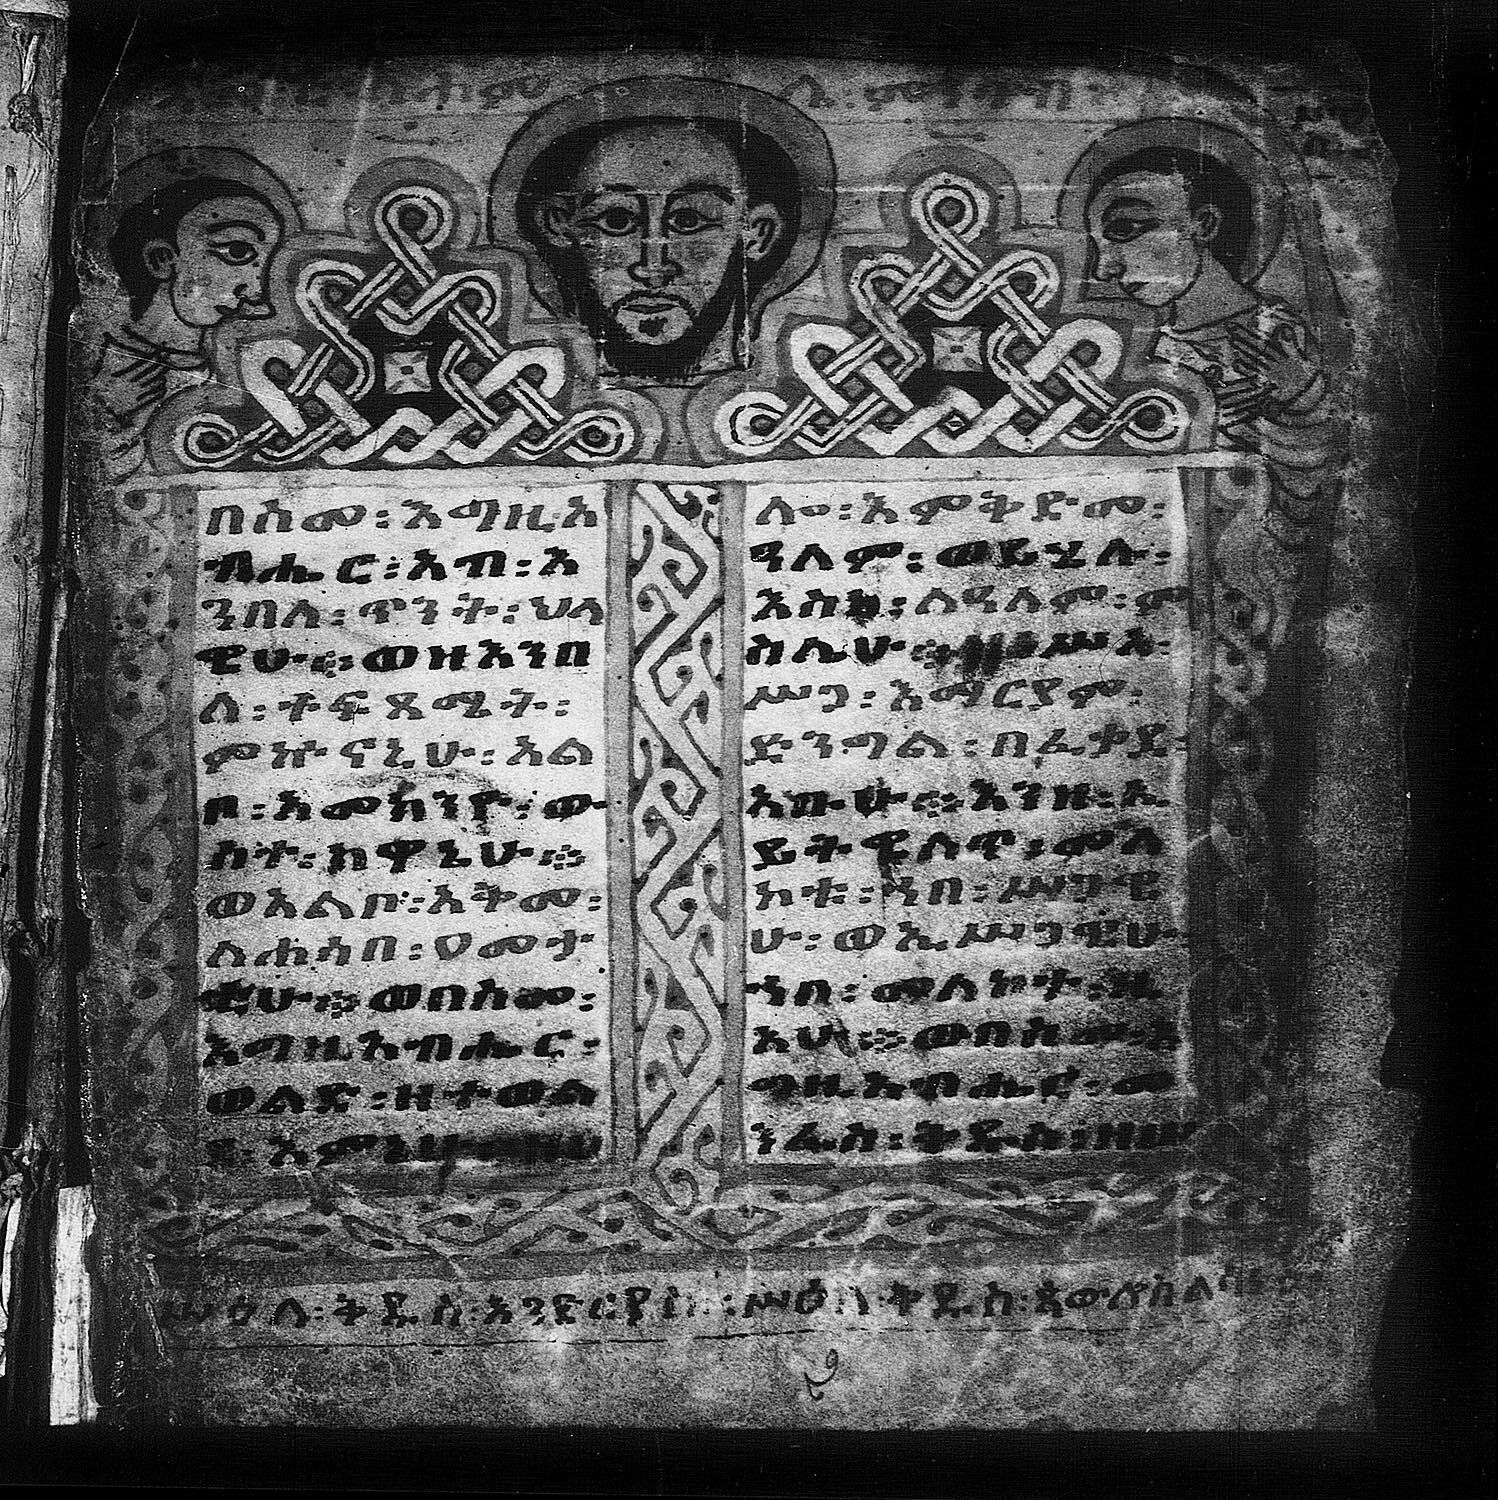 በስመ፡ እግዚአ
ብሔር፡ አብ፡ እ
ንበለ፡ ጥንት፡ ህላ
ዌሁ፨ ወዘእንበ
ለ፡ ተፍጻሜት፡
ምኵናኒሁ፡ አል
ቦ፡ እመክንዮ፡ ው
ስተ፡ ክዋኔሁ፨
ወአልቦ፡ አቅመ፡
ለሐሳበ፡ ዐመታ
ቲሁ፨ ወበስመ፡
እግዚአብሔር፡
ወልድ፡ ዘተወል
ደ፡ እምኔሁ
ሎ፡ እምቅድመ፡
ዓለም፡ ወይሄሉ፡
እስከ፡ ለዓለም፡ ም
ስሌሁ፨ ዘነሥአ፡
ሥጋ፡ እማርያም፡
ድንግል፡ በፈቃደ፡
አቡሁ፨ እንዘ፡ ኢ
ይትዌለጥ፡ መለ
ኮቱ፡ ኀበ፡ ሥጋዌ
ሁ፡ ወኢሥጋዌሁ፡
ኀበ፡ መለኮት፡ ዚ
አሁ፨ ወበስመ፡ እ
ግዚአብሔር፡ መ
ንፈስ፡ ቅዱስ፡
ሥዕለ፡ ቅዱስ፡ እንድርያስ፡ ሥዕለ፡ ቅዱስ፡ ጳውሎስ